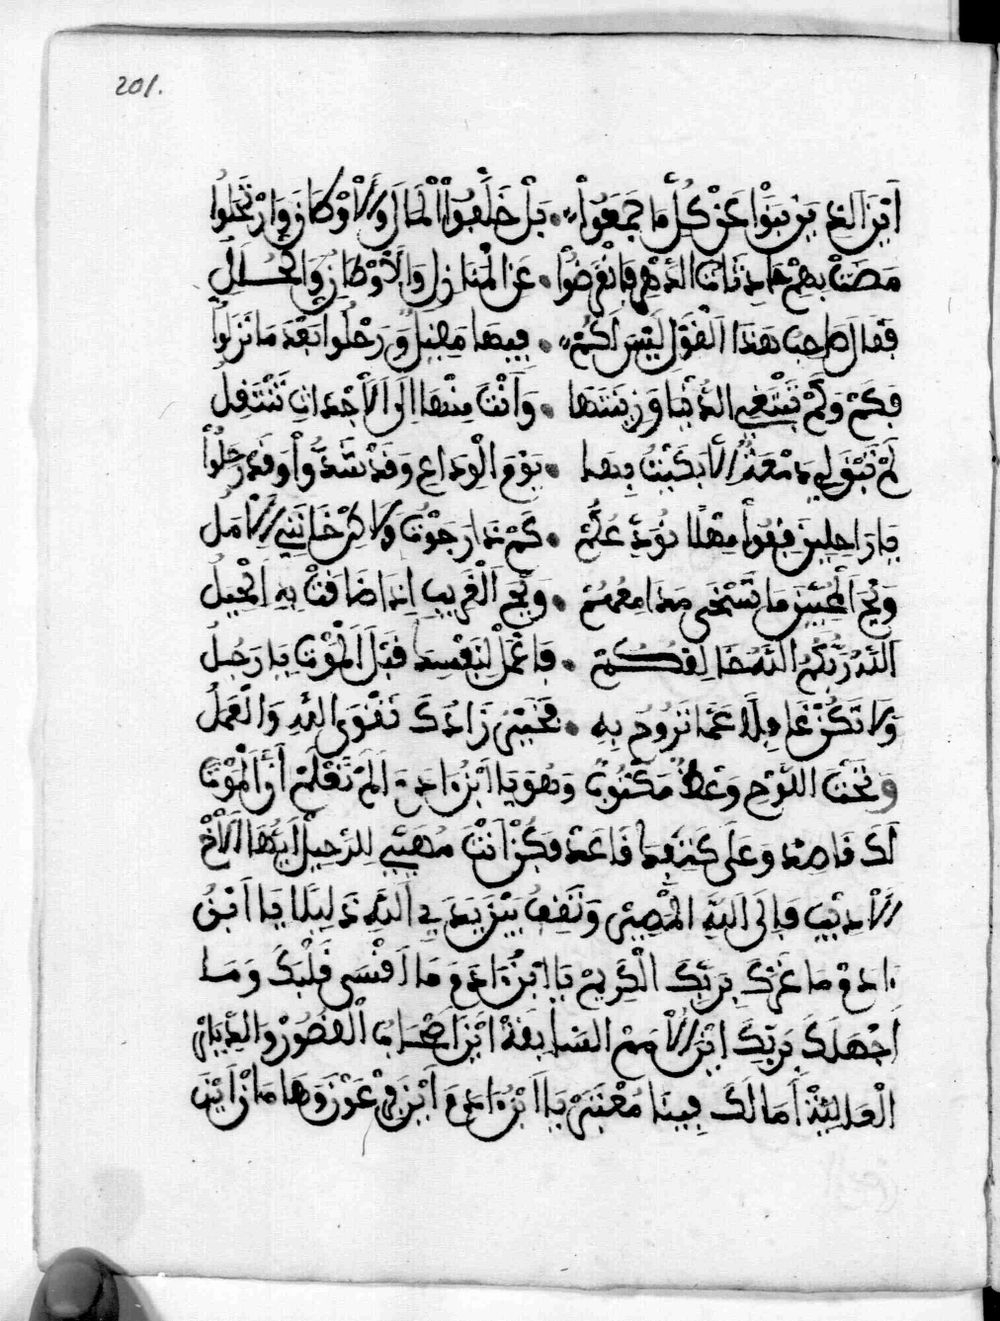 201.
اَيْنَ الذِينَ بَنَوْا عَنْ كُلِّ مَا جَمَعُواْ • بَلْ خَلَّفُواْ الْمَالَ وَالْأَوْطَانَ وَارْتَحَلُوا
مَضَتْ بِهِمْ حَادِثَاتُ الدَّهْرِ فَانْقَرَضُواْ • عَنِ الْمَنَازِلِ وَالْأَوْطَانِ وَالْحُلَلِ
فَقَالَ صَاحِبُ هَذَا الْقَوْلِ لَيْسَ لَكُمْ • فِيهَا مَقِيلٌ وَرَحْلُوا بَعْدَ مَا نَزَلُواْ
فَكَمْ وَلَمْ تَبْتَغِي الدُّنْيَا وَزِينَتَهَا • وَأَنْتَ مِنْهَا إِلَى الْأَجْدَاثِ تَنْتَقِلُ
لَمْ تَبْقَ لِي دَمْعَةٌ إِلَّا بَكَيْتُ بِهَا • يَوْمَ الْوَدَاعِ وَقَدْ شَدُّواْ وَقَدْ رَحَلُواْ
يَا رَاحِلِينَ قِفُواْ مَهْلًا نُوَدِّعُكُمْ • كَمْ ذَا رَجَوْتُ وَلَاكِنْ خَانَنِي الْأَمَلُ
وَيْحَ الْمُحِبِّينَ مَا تَسْتَحْيِ مَدَامِعُهُمْ • وَيْحَ الْغَرِيبِ إِذَا ضَاقَتْ بِهِ الْحِيَلُ
اللَّهُ رَبُّكُمُ اللَّهُ خَالِقُكُمْ • فَاعْمَلْ لِنَفْسِكَ قَبْلَ الْمَوْتِ يَا رَجُلُ
وَلَا تَكُنْ غَافِلًا عَمَّا تَرُوحُ بِهِ • فَخَيْرُ زَادِكَ تَقْوَى اللَّهِ وَالْعَمَلُ
وَتَحْتَ اللَّوْحِ وَعْظٌ مَكْتُوبٌ وَهُوَ يَا ابْنَ ءَادَمَ أَلَمْ تَعْلَمْ أَنَّ الْمَوْتَ
لَكَ قَاصِدٌ وَعَلَى قَاعَدَ فَكُنْ أَنْتَ مُهَيِّئٌ لِلرَّحِيلْ أَيُّهَا الْأَخْ
الْأَدِيبُ فَإِلَى اللَّهِ الْمَصِيرُ وَتَقِفُ بَيْنَ يَدَيِ اللَّهِ ذَلِيلًا يَا ابْنَ
ءَادَمْ مَا غَرَّكَ بِرَبِّكَ الْكَرِيمْ يَا ابْنَ ءَادَمَ مَا أَقْسَى قَلْبَكَ وَمَا
أَجْهَلَكَ بِرَبِّكَ أَيْنَ الْأُمَمُ السَّابِقَةْ أَيْنَ أَصْحَابُ الْقُصُورْ وَالدِّيَارْ
الْعَالِيَةْ أَمَا لَكَ فِيهَا مُعْتَبَرْ يَا ابْنَ ءَادَمَ أَيْنَ فِرْعَوْنَ وَهَامَانْ أَيْنَ